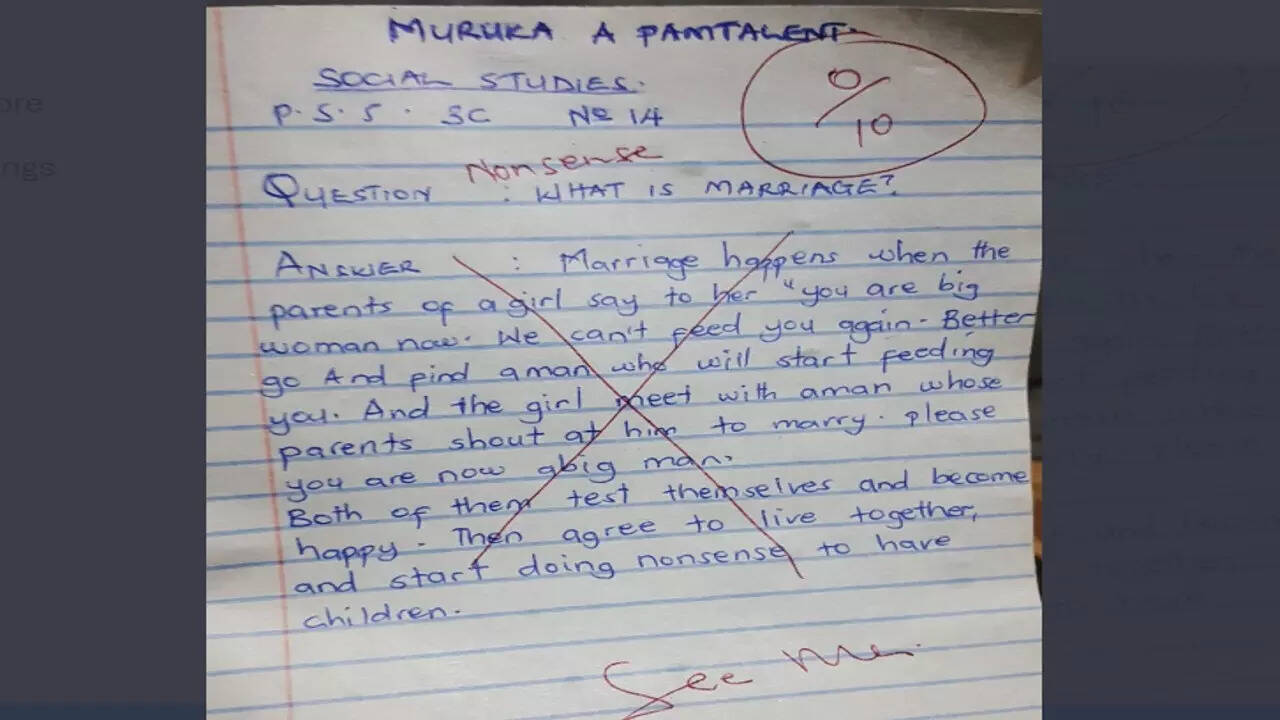 MURUKA A PAMTALENT.
SOCIAL STUDIES.
P.S.5. SC No 14
0/10
Nonsense
QUESTION : WHAT IS MARRIAGE?
ANSWER : Marriage happens when the
parents of a girl say to her "you are big
woman now. We can't feed you again. Better
go And find aman who will start feeding
you. And the girl meet with aman whose
parents shout at him to marry. please
you are now abig man.
Both of them test themselves and become
happy. Then agree to live together,
and start doing nonsense to have
children.
See me.
ore
ngs